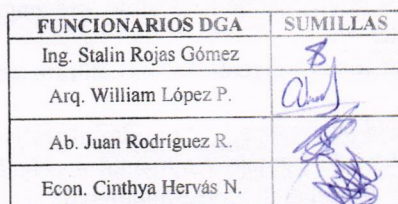 FUNCIONARIOS DGA SUMILLAS
Ing. Stalin Rojas Gómez
Arq. William López P.
Ab. Juan Rodríguez R.
Econ. Cinthya Hervás N.